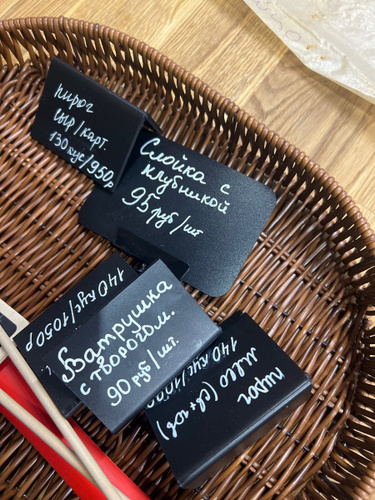 пирог
сыр/карт.
130 кус/950р
Слойка с
клубникой
95 руб/шт
140 кус/1050р
Ватрушка
с творогом.
90 руб/шт.
пирог
мясо (св+гов)
140 кус/